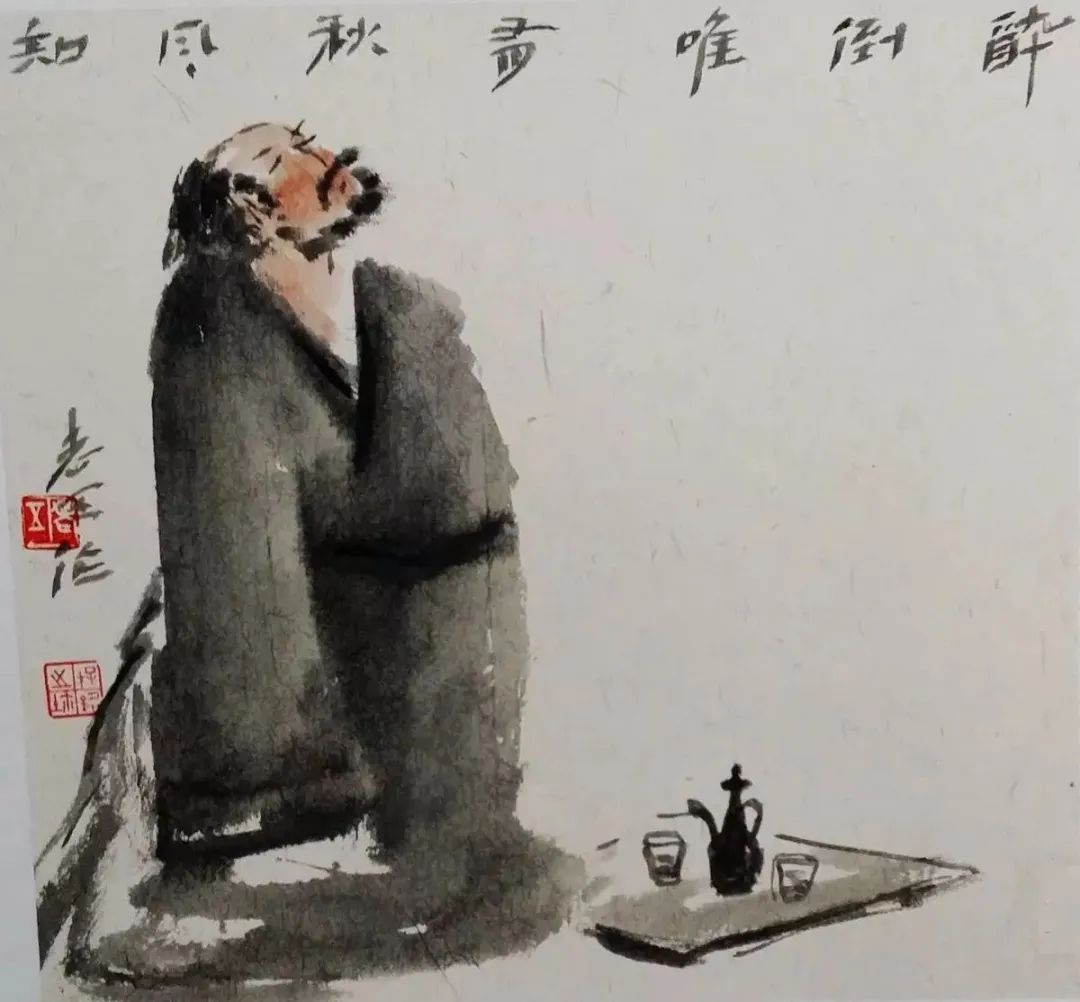 醉倒唯有秋风知
作